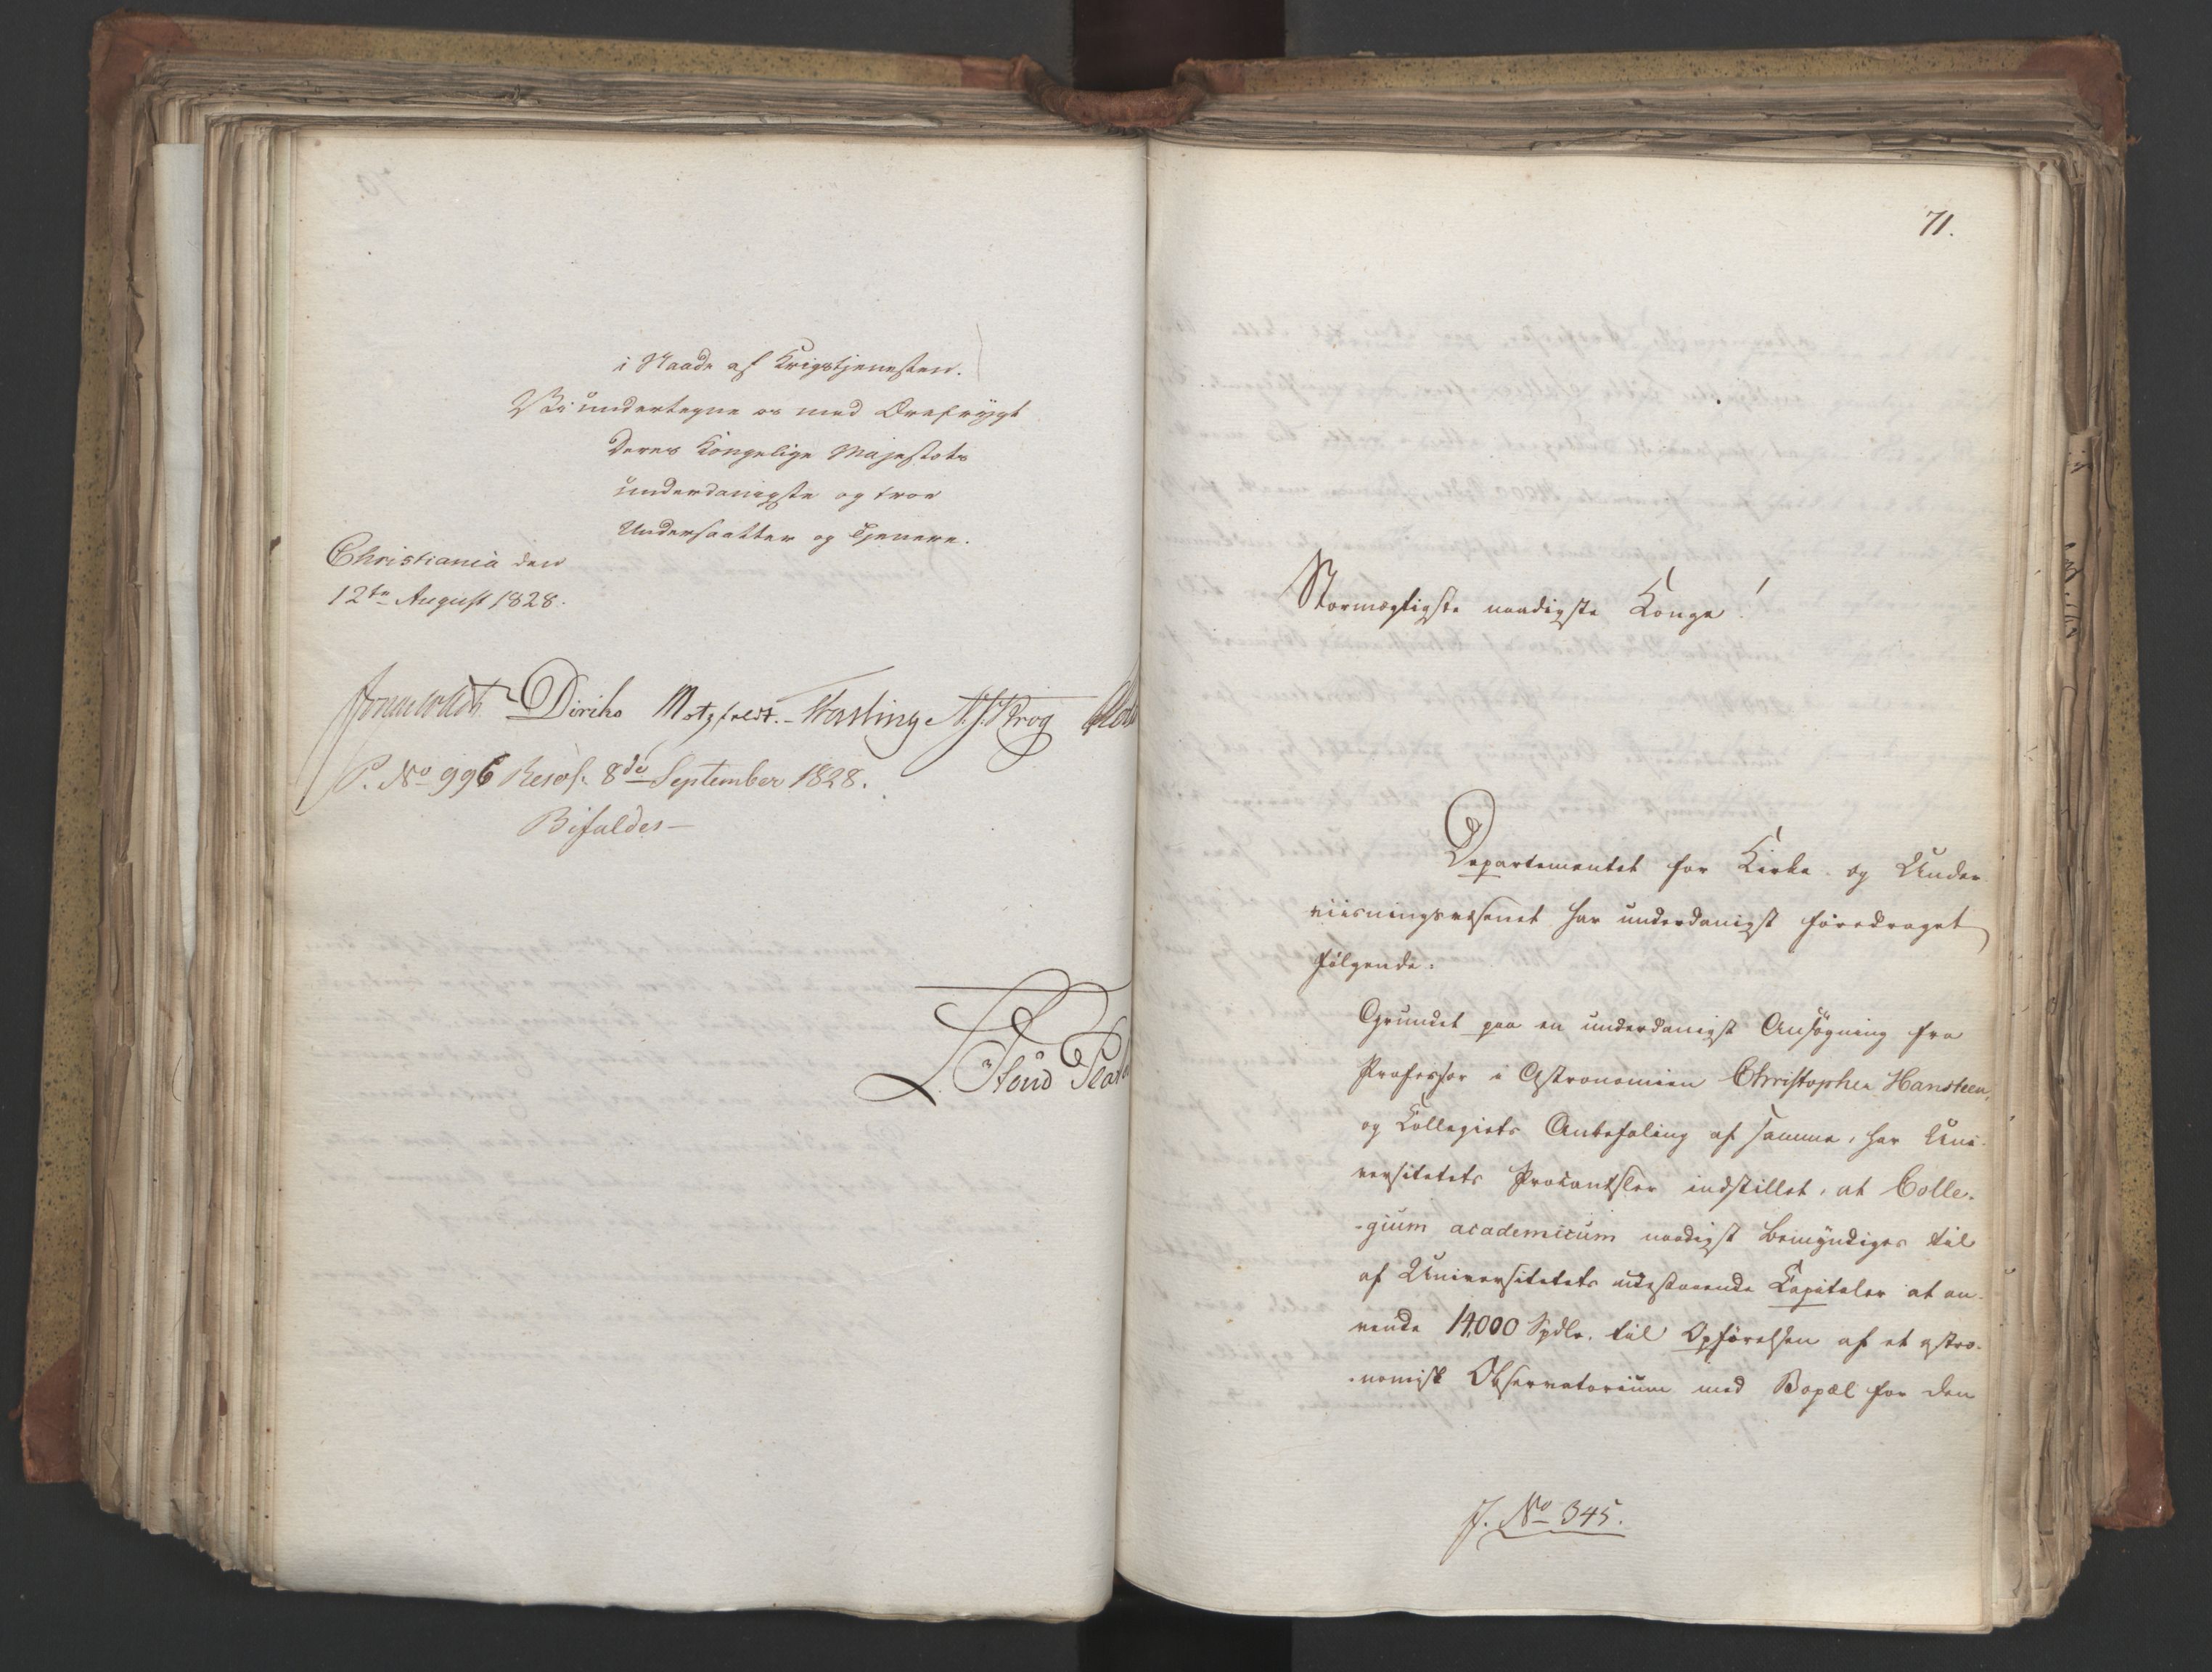 i Naade af Krigstjenesten.
Vi undertegne os med Ærefrygt
Deres Kongelige Majestæts
underdanigste og troe
Undersaatter og Tjenere.
Christiania den
12te August 1828.
Diriks Motzfeldt. A. J. Krog
P. No 996 Resol. 8de September 1828.
Bifaldes
71.
Stormægtigste naadigste Konge!
Departementet for Kirke- og Under-
viisningsvæsenet har underdanigst foredraget
følgende:
Grundet paa en underdanigst Ansøgning fra
Professor i Astronomien Christopher Hansteen,
og Kollegiets Anbefaling af samme, har Uni-
versitetets Prokantsler indstillet, at Colle-
-gium academicum naadigst bemyndiges til
af Universitetets udestaaende Kapitaler at an-
vende 14000 Spdlr. til Opførelsen af et astro-
-nomisk Observatorium med Bopæl for den
J. No 345.